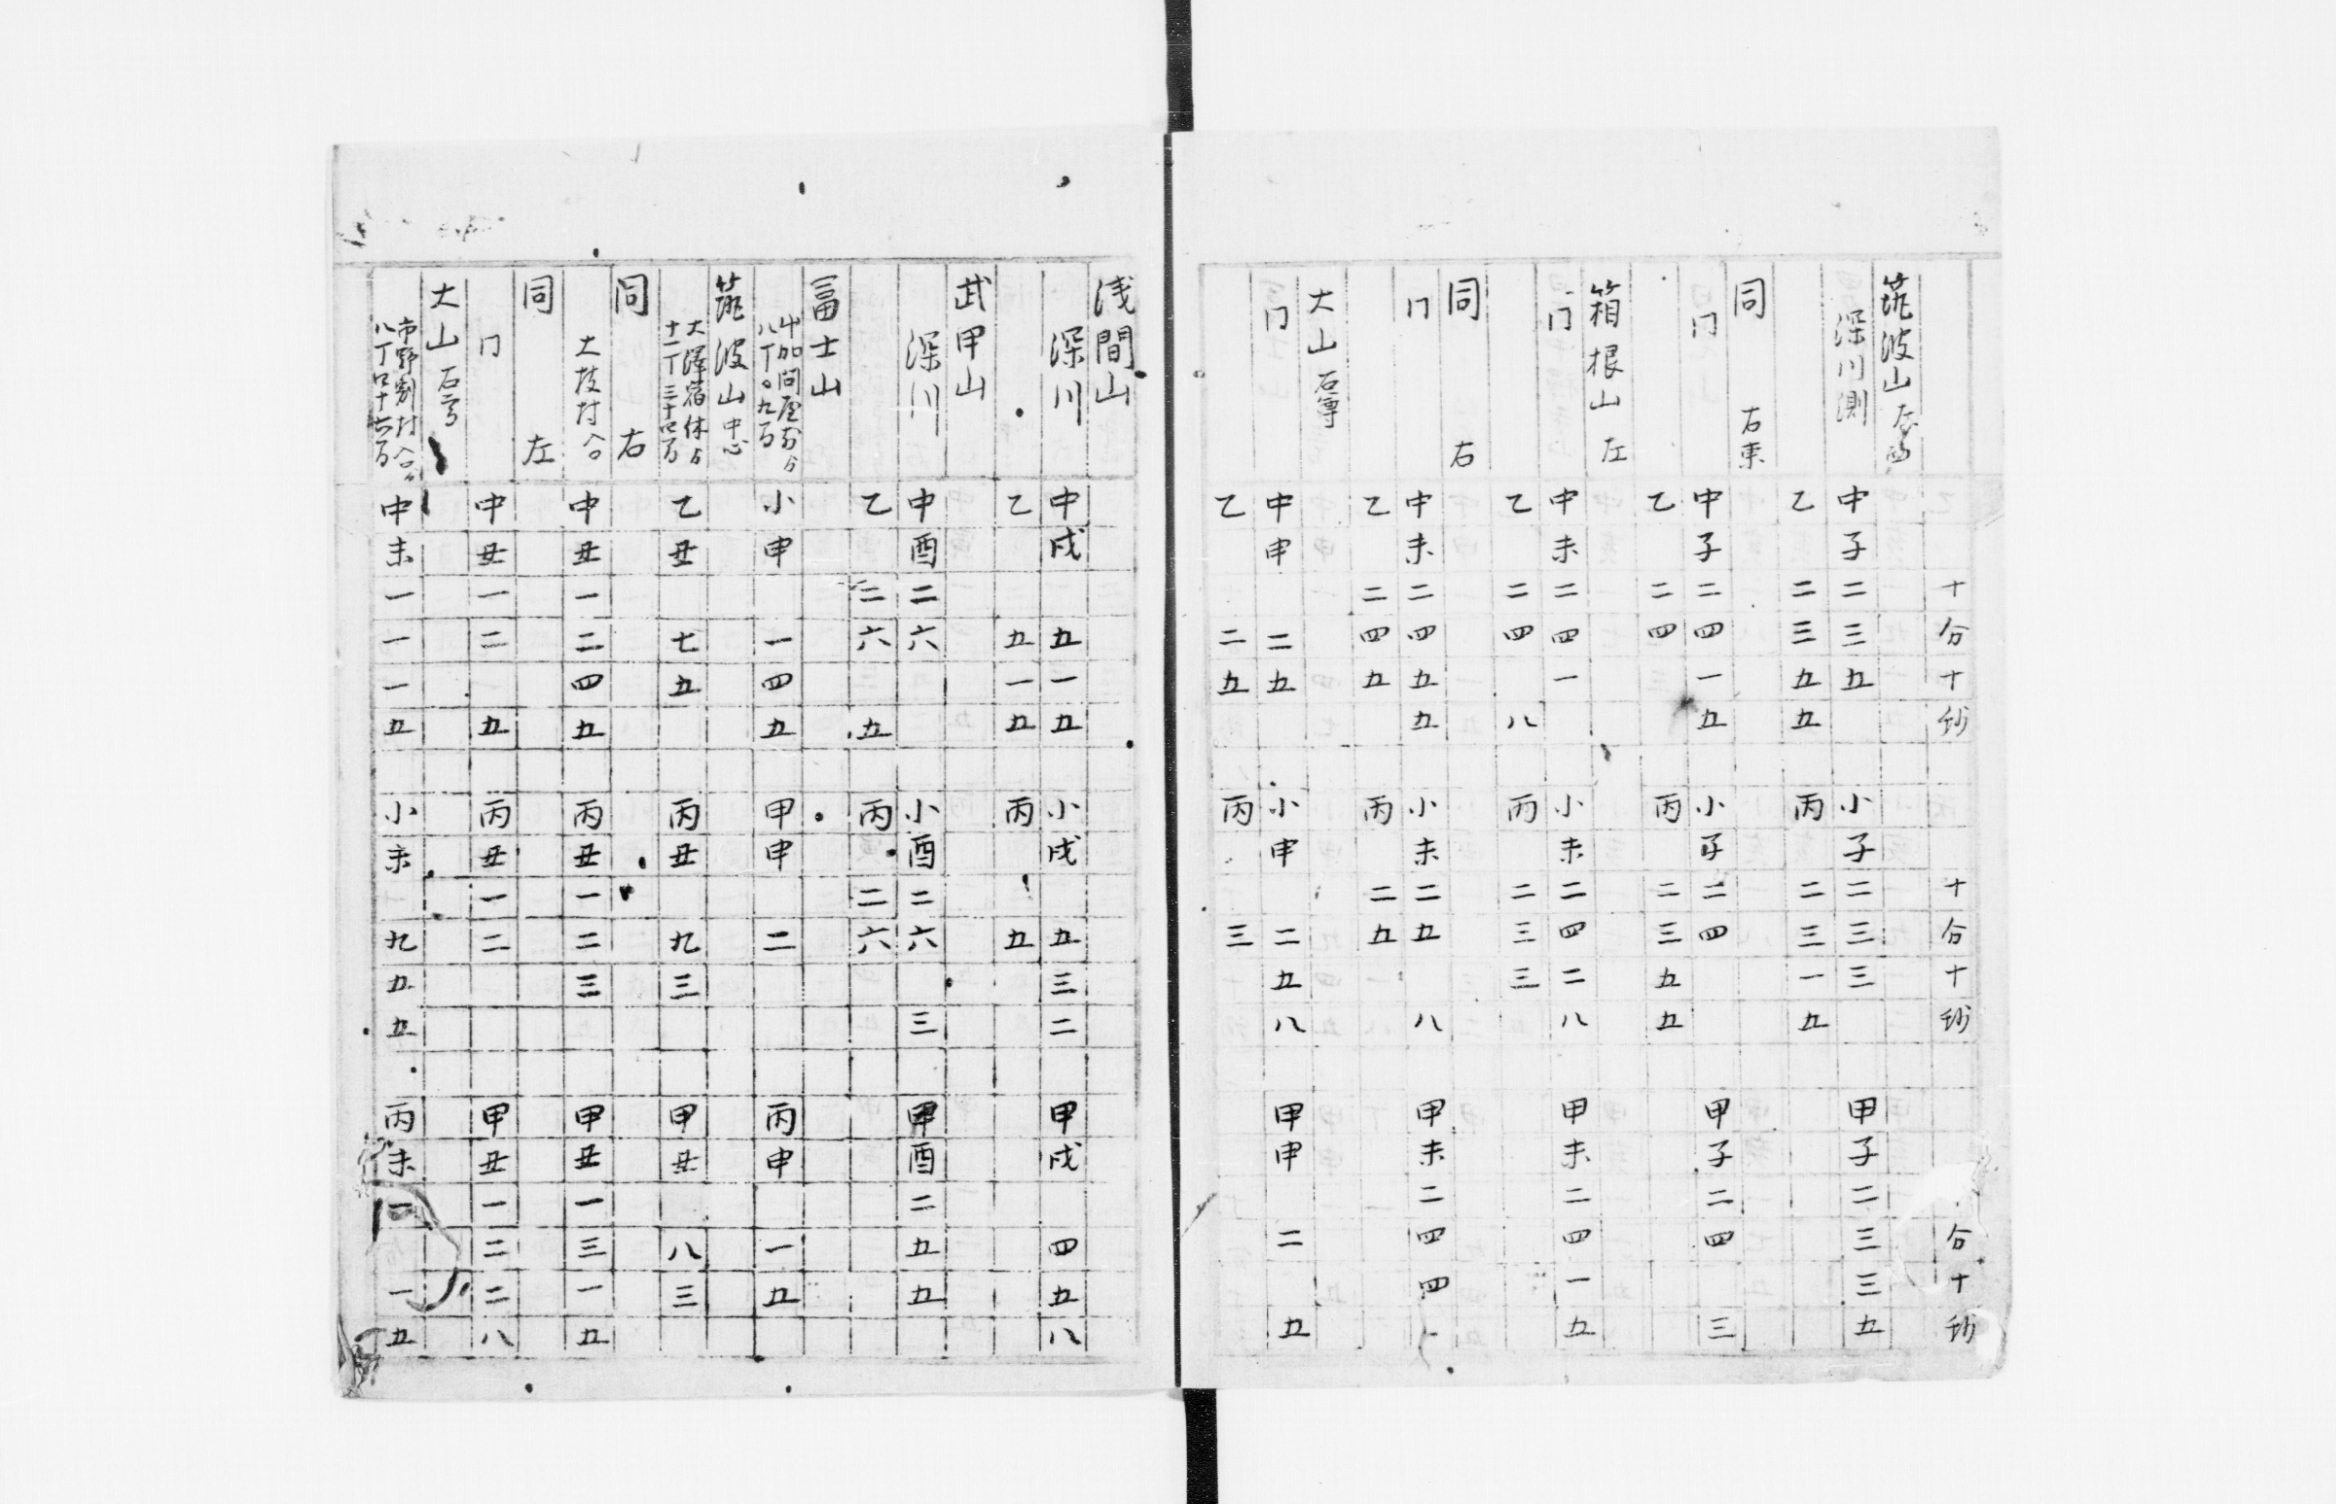 十分十抄 十分十抄 分十抄
筑波山 左西
深川測 中子二三五 小子二三三 甲子二三三五
乙二三五五 丙二三一五
同 右東
门 中子二四一五 小子二四 甲子二四三
乙二四 丙二三五五
箱根山 左
门 中未二四一 小未二四二八 甲未二四一五
乙二四八 丙二三三
同 右
门 中未二四五五 小未二五八 甲未二四四
乙二四五 丙二五
大山 石尊
门 中申二五 小申二五八 甲申二五
乙二五 丙三
浅間山
深川 中戌五一五 小戌五三二 甲戌四五八
乙五一五 丙五
武甲山
深川 中酉二六 小酉二六三 甲酉二五五
乙二六五 丙二六
冨士山
八丁〇九 小申一四五 甲申二 丙申一五
筑波山 中心
大澤宿休 十一丁三十 乙丑七五 丙丑九三 甲丑八三
同 右
大枝村 中丑一二四五 丙丑一二三 甲丑一三一五
同 左
门 中丑一二五 丙丑一二 甲丑一二二八
大山 石尊
市野割村 八丁 中未一一一五 小未九五五 丙未一一五